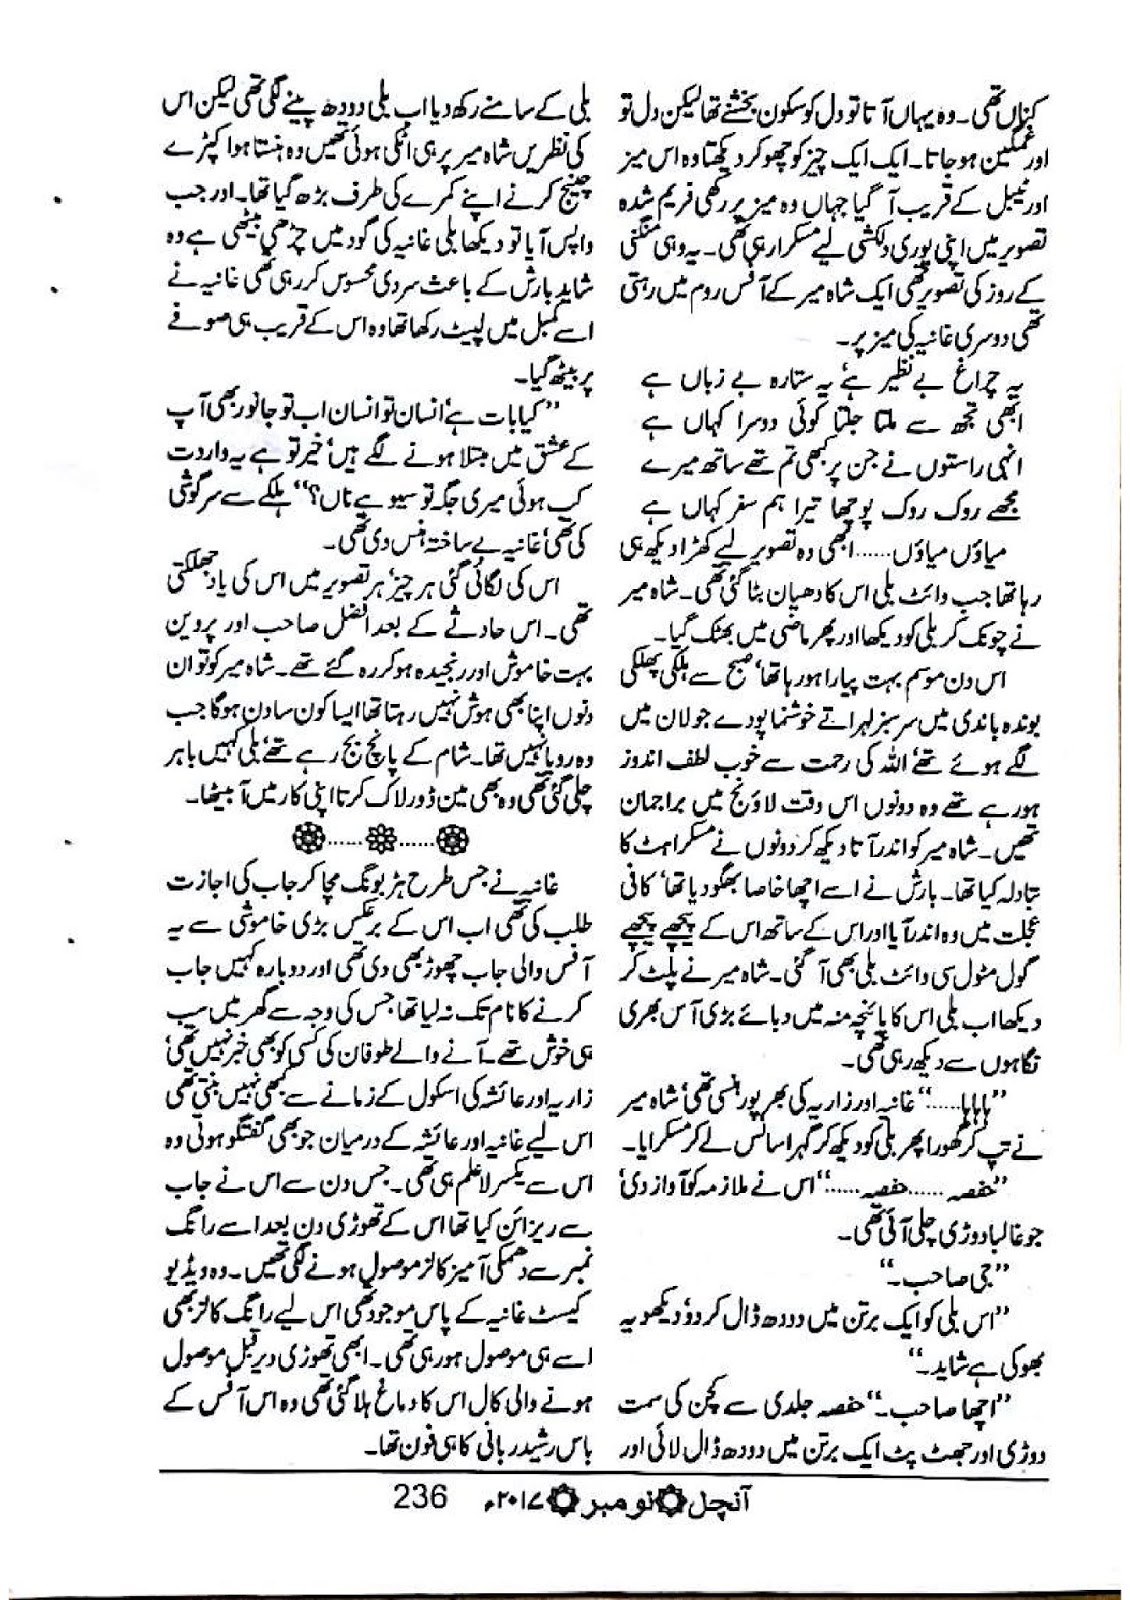 کناں تھی۔ وہ یہاں آتا تو دل کو سکون بخشنے تھا لیکن دل تو
اور غمگین ہو جاتا۔ ایک ایک چیز کو چھو کر دیکھتا وہ اس میز
اور ٹیبل کے قریب آ گیا جہاں وہ میز پر رکھی فریم شدہ
تصویر میں اپنی پوری دلکشی لیے مسکرا رہی تھی۔ یہ وہی منگنی
کے روز کی تصویر تھی ایک شاہ میر کے آفس روم میں رہتی
تھی دوسری غانیہ کی میز پر۔
یہ چراغ بے نظیر ہے‘ یہ ستارہ بے زباں ہے
ابھی تجھ سے ملتا جلتا کوئی دوسرا کہاں ہے
انہی راستوں نے جن پر کبھی تم تھے ساتھ میرے
مجھے روک روک پوچھا تیرا ہم سفر کہاں ہے
میاؤں میاؤں...... ابھی وہ تصویر لیے کھڑا دیکھ ہی
رہا تھا جب وائٹ بلی اس کا دھیان بٹا گئی تھی۔ شاہ میر
نے چونک کر بلی کو دیکھا اور پھر ماضی میں بھٹک گیا۔
اس دن موسم بہت پیارا ہو رہا تھا‘ صبح سے ہلکی پھلکی
بوندہ باندی میں سرسبز لہراتے خوشنما پودے جو لان میں
لگے ہوئے تھے‘ اللہ کی رحمت سے خوب لطف اندوز
ہو رہے تھے وہ دونوں اس وقت لاؤنج میں براجمان
تھیں۔ شاہ میر کو اندر آتا دیکھ کر دونوں نے مسکراہٹ کا
تبادلہ کیا تھا۔ بارش نے اسے اچھا خاصا بھگو دیا تھا‘ کافی
عجلت میں وہ اندر آیا اور اس کے ساتھ اس کے پیچھے پیچھے
گول مٹول سی وائٹ بلی بھی آ گئی۔ شاہ میر نے پلٹ کر
دیکھا اب بلی اس کا پائنچہ منہ میں دبائے بڑی آس بھری
نگاہوں سے دیکھ رہی تھی۔
”ہاہاہا......“ غانیہ اور زاریہ کی بھرپور ہنسی تھی‘ شاہ میر
نے تپ کر گھورا پھر بلی کو دیکھ کر گہرا سانس لے کر مسکرایا۔
”حفصہ...... حفصہ......“ اس نے ملازمہ کو آواز دی‘
جو غالبا دوڑی چلی آئی تھی۔
”جی صاحب۔“
”اس بلی کو ایک برتن میں دودھ ڈال کر دو‘ دیکھو یہ
بھوکی ہے شاید۔“
”اچھا صاحب۔“ حفصہ جلدی سے کچن کی سمت
دوڑی اور جھٹ پٹ ایک برتن میں دودھ ڈال لائی اور
بلی کے سامنے رکھ دیا اب بلی دودھ پینے لگی تھی لیکن اس
کی نظریں شاہ میر پر ہی اٹکی ہوئی تھیں وہ ہنستا ہوا کپڑے
چینج کرنے اپنے کمرے کی طرف بڑھ گیا تھا۔ اور جب
واپس آیا تو دیکھا بلی غانیہ کی گود میں چڑھی بیٹھی ہے وہ
شاید بارش کے باعث سردی محسوس کر رہی تھی غانیہ نے
اسے کمبل میں لپیٹ رکھا تھا وہ اس کے قریب ہی صوفے
پر بیٹھ گیا۔
”کیا بات ہے‘ انسان تو انسان اب تو جانور بھی آپ
کے عشق میں مبتلا ہونے لگے ہیں‘ خیر تو ہے یہ واردت
کب ہوئی میری جگہ تو سیو ہے ناں؟“ ہلکے سے سرگوشی
کی تھی‘ غانیہ بے ساختہ ہنس دی تھی۔
اس کی لگائی گئی ہر چیز‘ ہر تصویر میں اس کی یاد جھلکتی
تھی۔ اس حادثے کے بعد افضل صاحب اور پروین
بہت خاموش اور رنجیدہ ہو کر رہ گئے تھے۔ شاہ میر کو تو ان
دنوں اپنا بھی ہوش نہیں رہتا تھا ایسا کون سا دن ہوگا جب
وہ رویا نہیں تھا۔ شام کے پانچ بج رہے تھے‘ بلی کہیں باہر
چلی گئی تھی وہ بھی مین ڈور لاک کرتا اپنی کار میں آ بیٹھا۔
...... ......
غانیہ نے جس طرح ہڑبونگ مچا کر جاب کی اجازت
طلب کی تھی اب اس کے برعکس بڑی خاموشی سے یہ
آفس والی جاب چھوڑ بھی دی تھی اور دوبارہ کہیں جاب
کرنے کا نام تک نہ لیا تھا جس کی وجہ سے گھر میں سب
ہی خوش تھے۔ آنے والے طوفان کی کسی کو بھی خبر نہیں تھی‘
زاریہ اور عائشہ کی اسکول کے زمانے سے کبھی نہیں بنتی تھی
اس لیے غانیہ اور عائشہ کے درمیان جو بھی گفتگو ہوئی وہ
اس سے یکسر لاعلم ہی تھی۔ جس دن سے اس نے جاب
سے ریزائن کیا تھا اس کے تھوڑی دن بعد اسے رانگ
نمبر سے دھمکی آمیز کالز موصول ہونے لگی تھیں۔ وہ ویڈیو
کیسٹ غانیہ کے پاس موجود تھی اس لیے رانگ کالز بھی
اسے ہی موصول ہو رہی تھی۔ ابھی تھوڑی دیر قبل موصول
ہونے والی کال اس کا دماغ ہلا گئی تھی وہ اس آفس کے
باس رشید ربانی کا ہی فون تھا۔
آنچل نومبر ۲۰۱۷ء 236